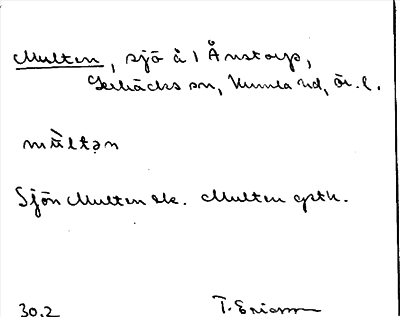 Multen, sjö å 1 Ånstorp,
Lerbäcks sn, Kumla hd, Ör. l.
mùltən
Sjön Multen sk. Multen gstk.
30.2 T. Ericsson